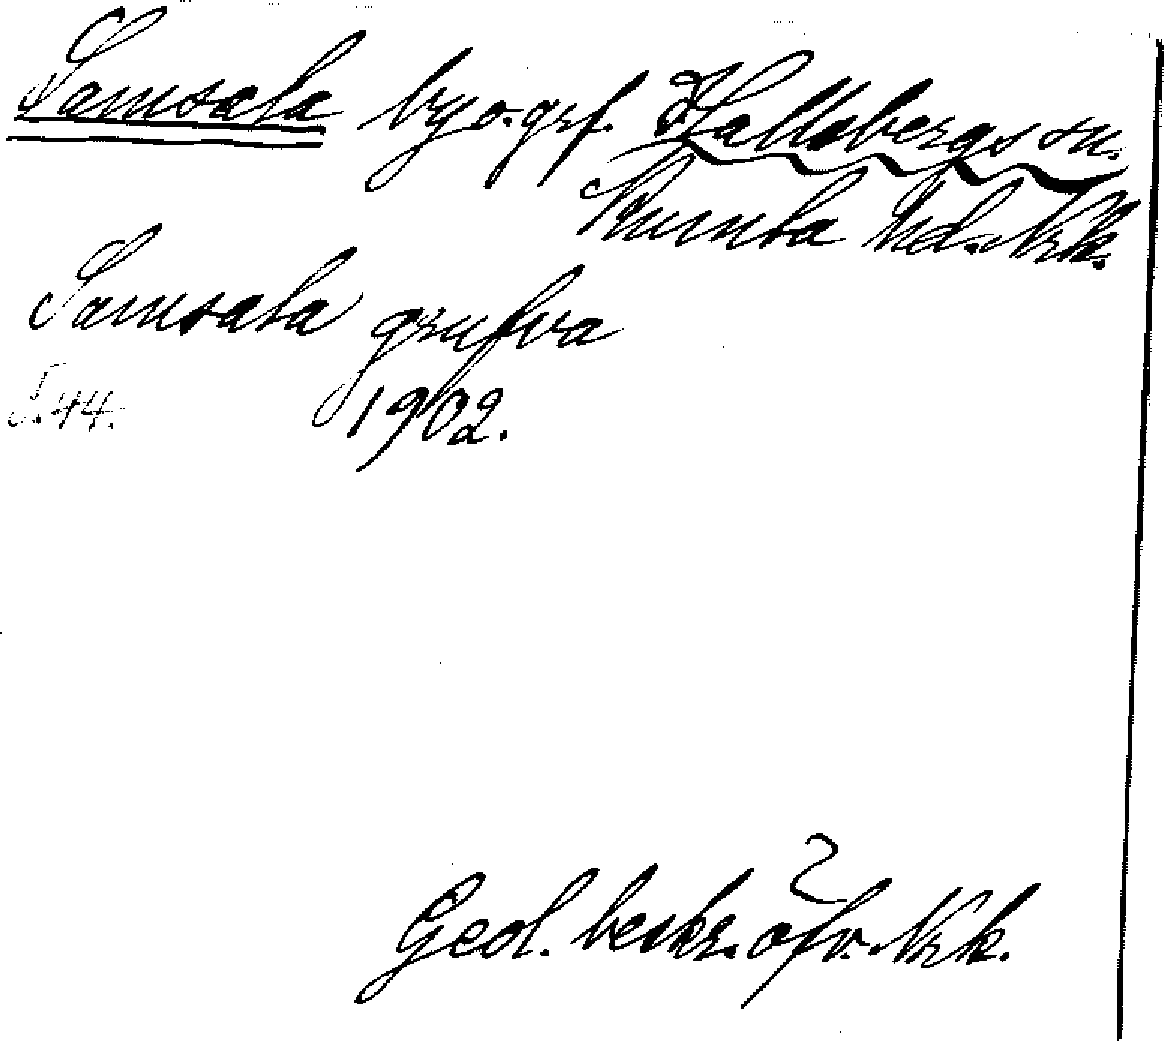 Samsala by o. grf. Hallsbergs sn.
Kumla hd. Nrk.
Samsala grufva
S. 44. 1902.
Geol. beskr. öfv. Nrk.